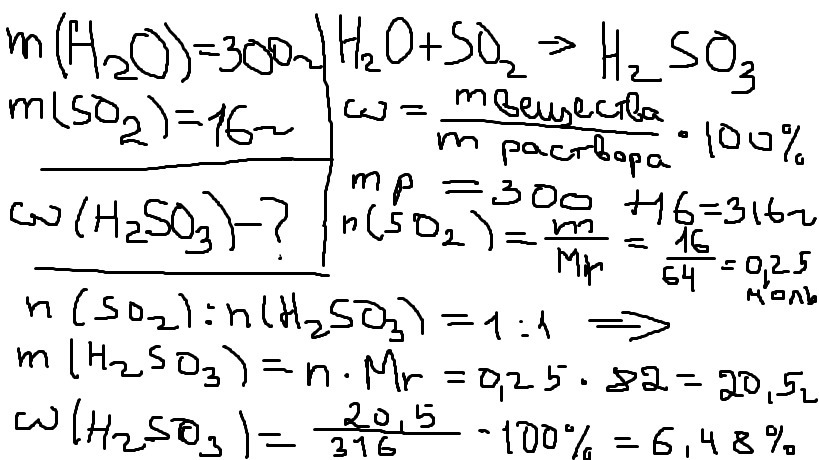 m(H₂O)=300г
m(SO₂)=16г
ω(H₂SO₃)-?
H₂O+SO₂→H₂SO₃
ω = m вещества / m раствора · 100%
m р = 300 +16=316г
n(SO₂)= m/Mr = 16/64 =0,25 моль
n(SO₂):n(H₂SO₃)=1:1 ⇒
m(H₂SO₃)=n·Mr=0,25·82=20,5г
ω(H₂SO₃)= 20,5/316 ·100%=6,48%